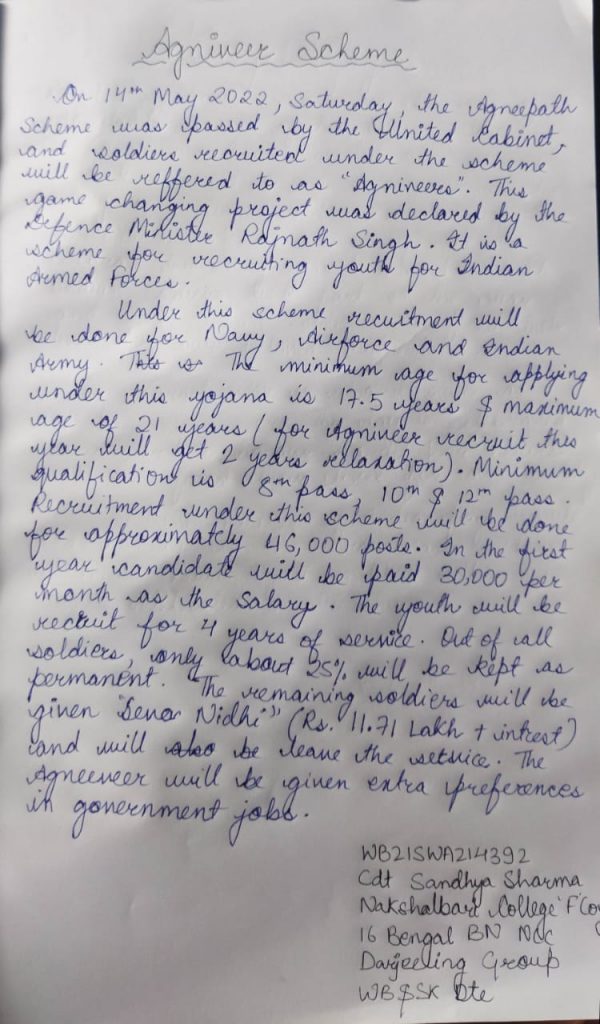 Agniveer Scheme
On 14th May 2022, Saturday, the Agneepath
Scheme was passed by the United Cabinet,
and soldiers recruited under the scheme
will be reffered to as "Agnineers". This
game changing project was declared by the
Defence Minister Rajnath Singh. It is a
scheme for recruiting youth for Indian
Armed Forces.
Under this scheme recuitment will
be done for Navy, Airforce and Indian
Army. This is The minimum age for applying
under this yojana is 17.5 years & maximum
age of 21 years (for Agniveer recruit this
year will get 2 years relaxation). Minimum
qualification is 8th pass, 10th & 12th pass.
Recruitment under this scheme will be done
for approximately 46,000 posts. In the first
year candidate will be paid 30,000 per
month as the Salary. The youth will be
recruit for 4 years of service. Out of all
soldiers, only about 25% will be kept as
permanent. The remaining soldiers will be
given "Seva Nidhi" (Rs. 11.71 Lakh + intrest)
and will also be leave the service. The
Agneeveer will be given extra preferences
in government jobs.
WB21SWA214392
Cdt Sandhya Sharma
Nakshalbari College 'F' Coy
16 Bengal BN NCC
Darjeeling Group
WB&SK Dte